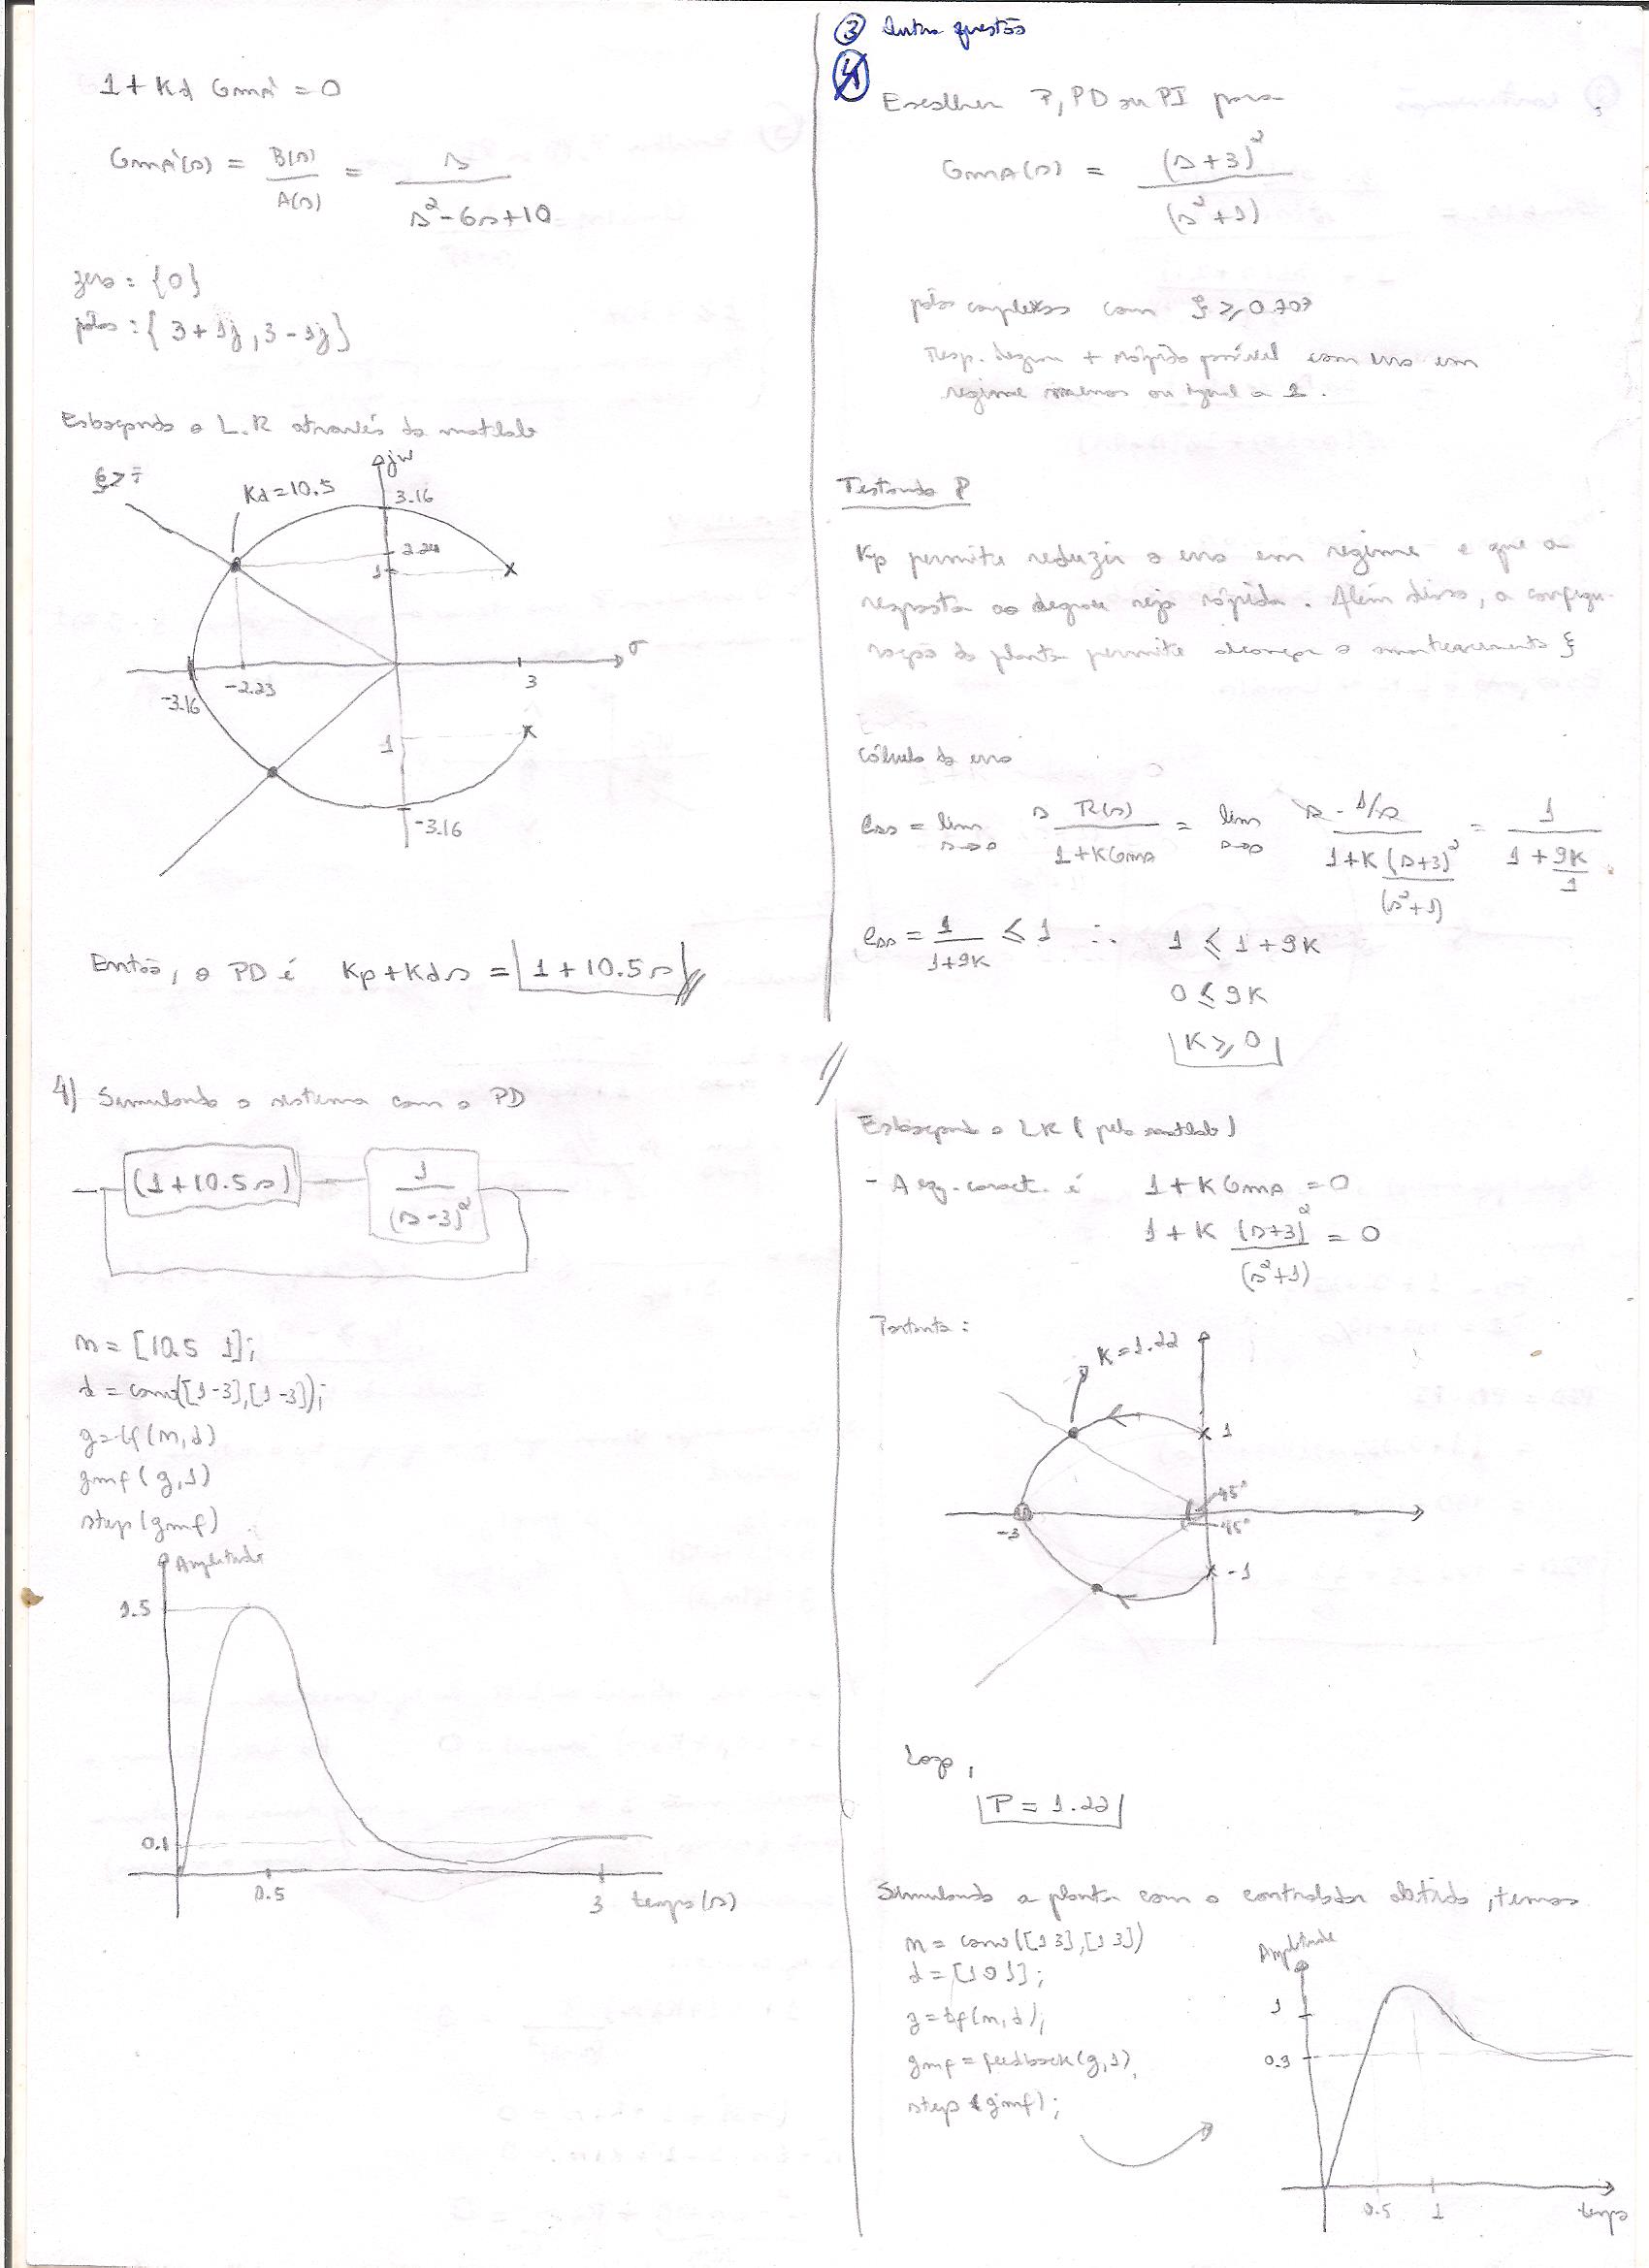 1 + Kd GmA' = 0
GmA'(s) = B(s)/A(s) = s/(s² - 6s + 10)
zero: {0}
pólos: {3+1j, 3-1j}
Esboçando o L.R através do matlab
jw
Kd=10.5
3.16
2.24
1
σ
-3.16
-2.23
3
1
-3.16
Então, o PD é Kp + Kds = 1 + 10.5s
4) Simulando o sistema com o PD
(1+10.5s)
1/(s-3)²
n = [10.5 1];
d = conv([1 -3],[1 -3]);
g = tf(n,d)
gmf(g,1)
step(gmf)
Amplitude
1.5
0.1
0.5
3
tempo(s)
③ Outra questão
4
Escolher P, PD ou PI para
GmA(s) = (s+3)²/(s²+1)
pólos complexos com ξ ≥ 0.707
resp. degrau + rápida possível com erro em
regime menor ou igual a 1.
Testando P
Kp permite reduzir o erro em regime e que a
resposta ao degrau seja rápida. Além disso, a configu-
ração da planta permite alcançar o amortecimento ξ
cálculo do erro
ess = lim s→0 s R(s)/(1+KGmA) = lim s→0 s·1/s/(1+K(s+3)²/(s²+1)) = 1/(1+9K/1)
ess = 1/(1+9K) ≤ 1 ∴ 1 ≤ 1+9K
0 ≤ 9K
K ≥ 0
Esboçando o LR (pelo matlab)
- A eq. caract. é 1 + KGmA = 0
1 + K (s+3)²/(s²+1) = 0
Portanto:
K=1.22
1
45°
-45°
-3
-1
Logo,
P = 1.22
Simulando a planta com o controlador obtido, temos
n = conv([1 3],[1 3])
d = [1 0 1];
g = tf(n,d);
gmf = feedback(g,1)
step(gmf);
Amplitude
1
0.3
0.5
1
tempo